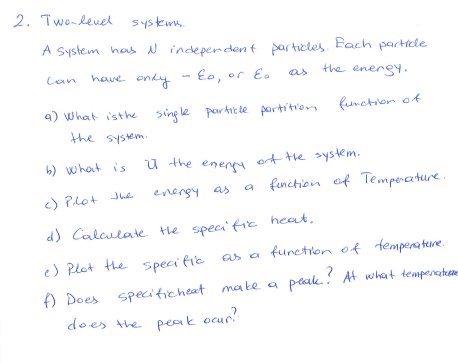 2. Two-level systems.
A system has N independent particles. Each particle
can have only - ε0, or ε0 as the energy.
a) What is the single particle partition function of
the system.
b) What is U the energy of the system.
c) Plot the energy as a function of Temperature.
d) Calculate the specific heat.
e) Plot the specific as a function of temperature.
f) Does specific heat make a peak? At what temperature
does the peak ocur?